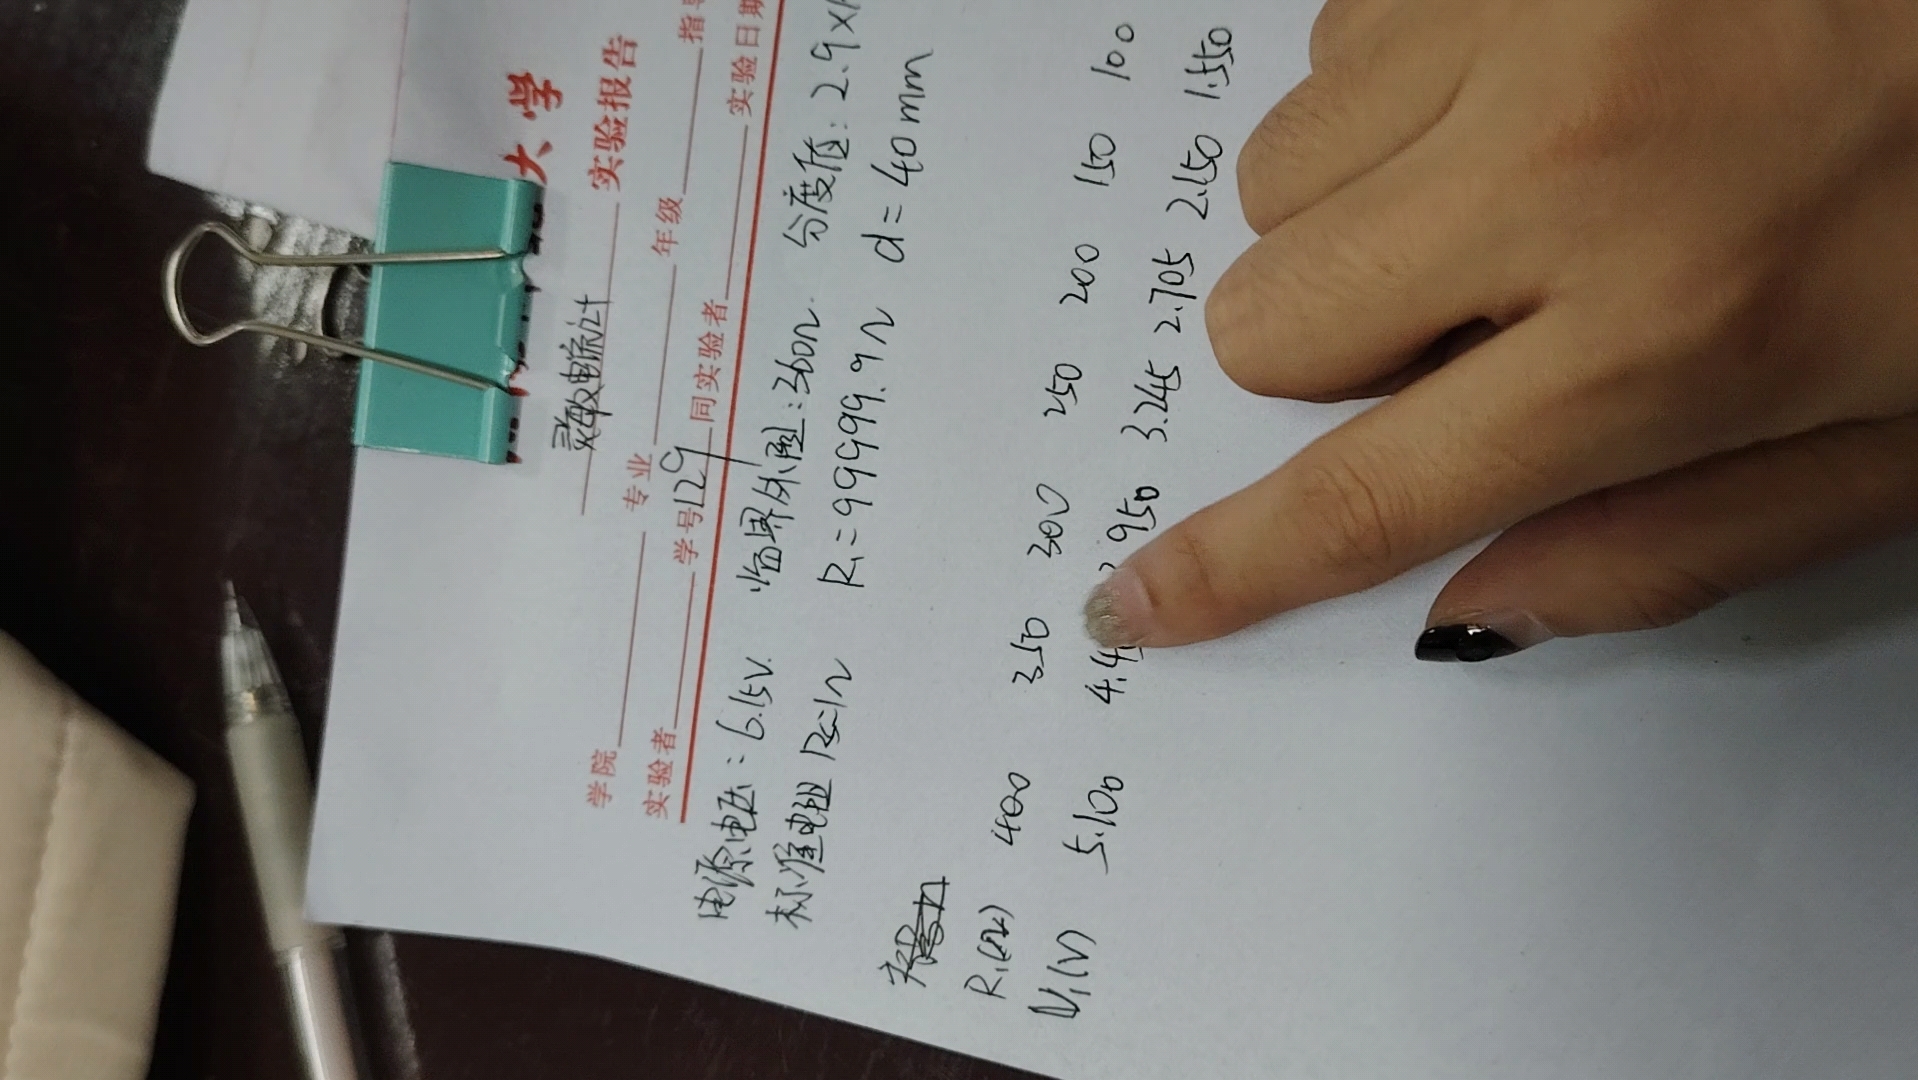 大学
灵敏电流计 实验报告
学院 专业 年级 指导
实验者 学号129 同实验者 实验日期
电源电压：6.15V. 临界外阻：360Ω. 分度值：2.9×
标准电阻 Rs=1Ω R₁=99999.9Ω d=40mm
R₁(Ω) 400 350 300 250 200 150 100
V₁(V) 5.100 4.4 950 3.245 2.705 2.150 1.550